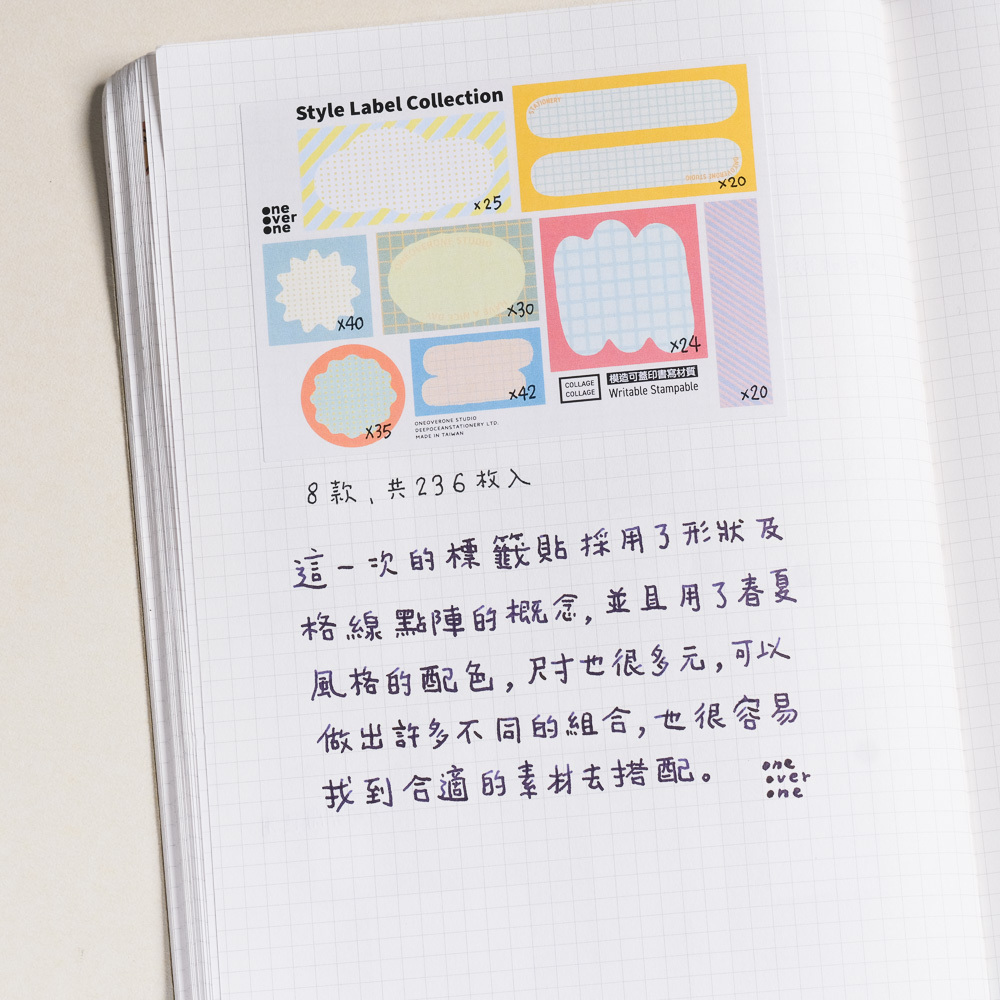 Style Label Collection
STATIONERY
x25
x20
one
over
one
x40
x30
x24
x20
x35
x42
COLLAGE
COLLAGE
模造可蓋印書寫材質
Writable Stampable
ONEOVERONE STUDIO
DEEPOCEANSTATIONERY LTD.
MADE IN TAIWAN
8款、共236枚入
這一次的標籤貼採用了形狀及
格線點陣的概念,並且用了春夏
風格的配色,尺寸也很多元,可以
做出許多不同的組合,也很容易
找到合適的素材去搭配。
one
over
one